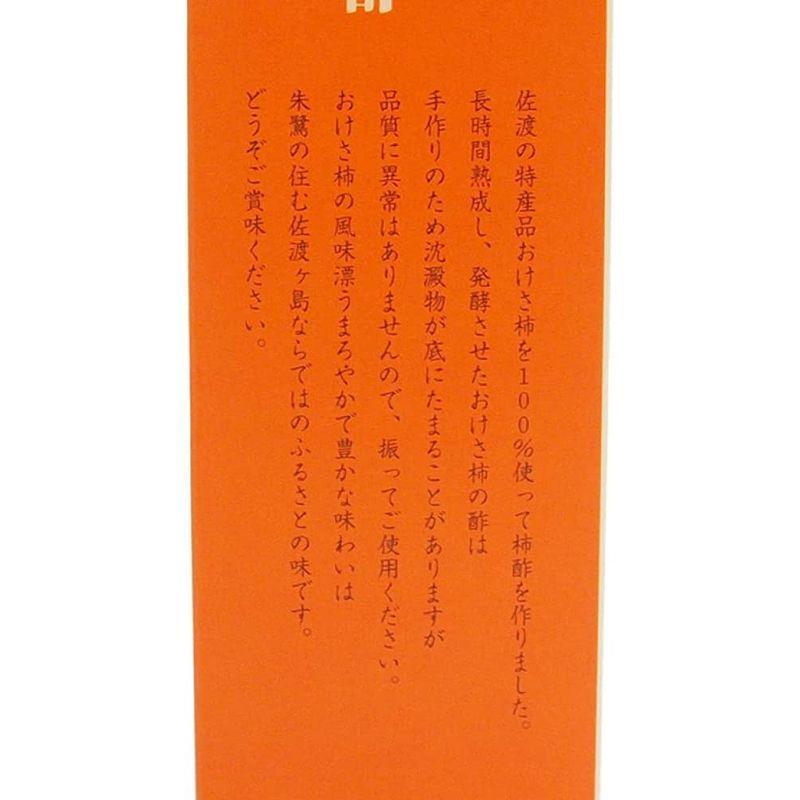 佐渡の特産品おけさ柿を100%使って柿酢を作りました。
長時間熟成し、発酵させたおけさ柿の酢は
手作りのため沈澱物が底にたまることがありますが
品質に異常はありませんので、振ってご使用ください。
おけさ柿の風味漂うまろやかで豊かな味わいは
朱鷺の住む佐渡ヶ島ならではのふるさとの味です。
どうぞご賞味ください。